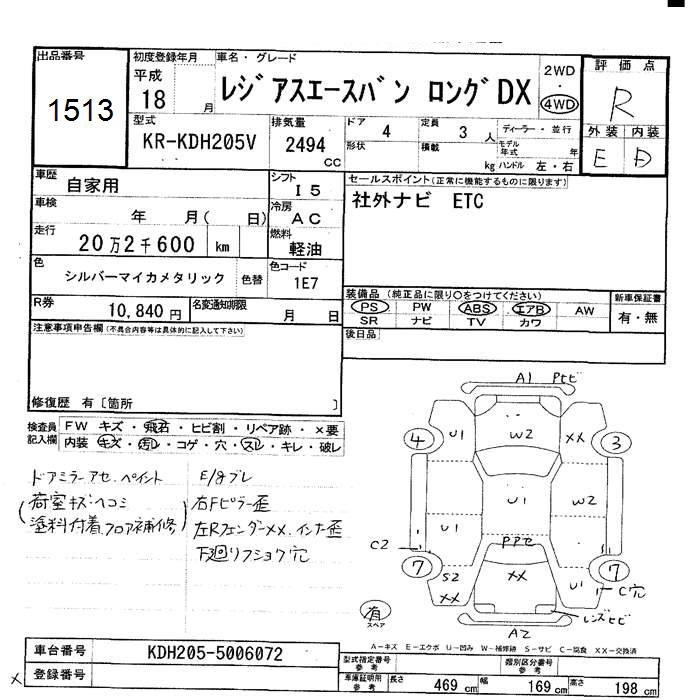 出品番号
1513
初度登録年月
平成
18 月
車名・グレード
レジアスエースバン ロングDX
2WD
・
4WD
評価点
R
外装 内装
E D
型式
KR-KDH205V
排気量
2494
CC
ドア 4
形状
定員 3 人
積載 kg
ディーラー・並行
モデル年式 年
ハンドル 左・右
車歴 自家用
シフト I5
車検 年 月( 日)
冷房 AC
走行 20万2千600 km
燃料 軽油
色 シルバーマイカメタリック 色替
色コード 1E7
R券 10,840円
名変通知期限 月 日
セールスポイント(正常に機能するものに限ります)
社外ナビ ETC
装備品 (純正品に限り○をつけてください)
PS PW ABS エアB AW
SR ナビ TV カワ
新車保証書
有・無
後日品
注意事項申告欄(不具合内容等は具体的に記入して下さい)
修復歴 有〔箇所 〕
検査員記入欄
FW キズ・飛石・ヒビ割・リペア跡・×要
内装 キズ・汚れ・コゲ・穴・スレ・キレ・破レ
ドアミラーアセ・ペイント
(荷室キズ・ヘコミ
塗料付着 フロア補修)
E/gブレ
右Fピラー歪
左Rフェンダーメメ・インナ歪
下廻リフショク穴
A1 Pヒビ
4 U1 W2 XX 3
U1 W2
U1
PPセ
C2
7 S2 XX XX U1 7
C穴
レンズヒビ
A2
有
スペア
A-キズ E-エクボ U-凹み W-補修跡 S-サビ C-腐食 XX-交換済
車台番号 KDH205-5006072
登録番号
×
型式指定番号 参考
類別区分番号 参考
車庫証明用 参考
長さ 469cm 幅 169cm 高さ 198cm